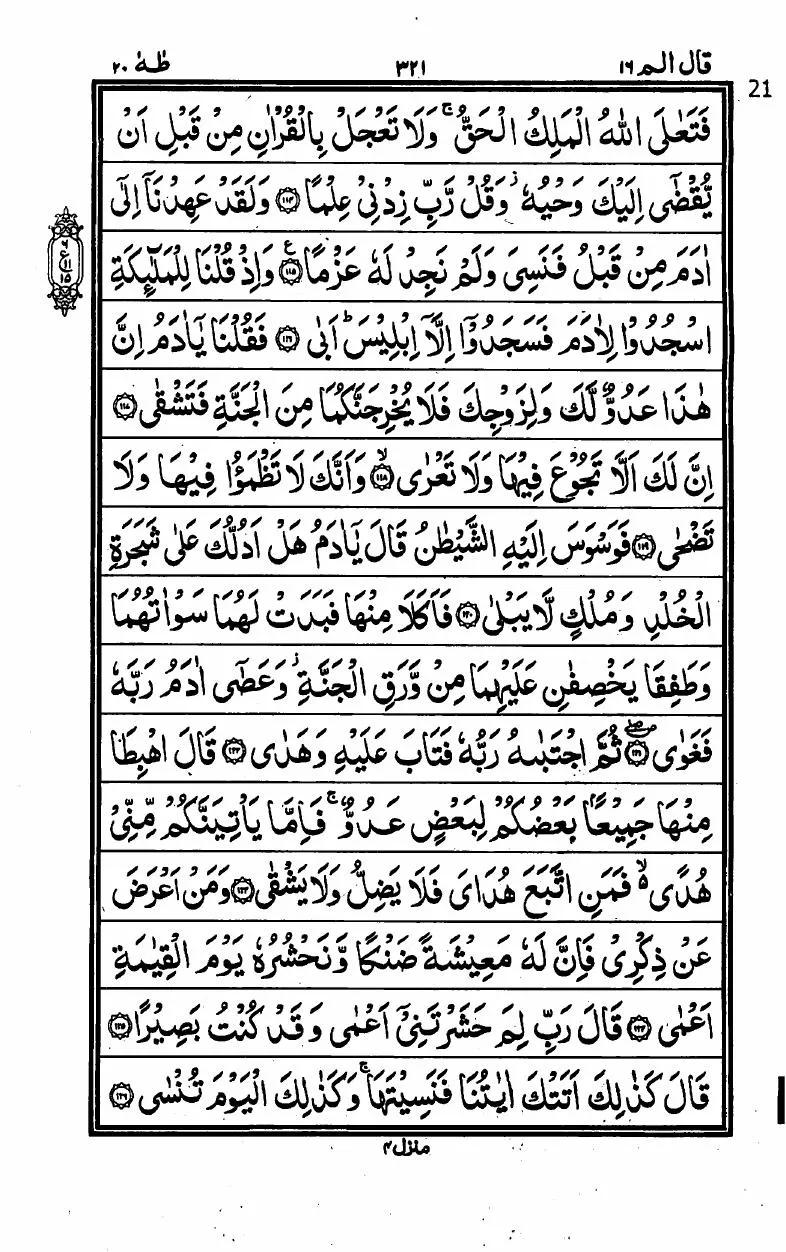 قال الم ١٦ ٣٢١ طٰهٰ ٢٠
21
فَتَعٰلَى اللّٰهُ الْمَلِكُ الْحَقُّ ۚ وَلَا تَعْجَلْ بِالْقُرْاٰنِ مِنْ قَبْلِ اَنْ
يُّقْضٰۤى اِلَيْكَ وَحْيُهٗ ۫ وَقُلْ رَّبِّ زِدْنِىْ عِلْمًا ۝۱۱۴ وَلَقَدْ عَهِدْنَاۤ اِلٰۤى
اٰدَمَ مِنْ قَبْلُ فَنَسِىَ وَلَمْ نَجِدْ لَهٗ عَزْمًا ۝۱۱۵ ع وَاِذْ قُلْنَا لِلْمَلٰٓئِكَةِ
٦
ع
١١
١٥
اسْجُدُوْا لِاٰدَمَ فَسَجَدُوْۤا اِلَّاۤ اِبْلِيْسَ ؕ اَبٰى ۝۱۱۶ فَقُلْنَا يٰۤاٰدَمُ اِنَّ
هٰذَا عَدُوٌّ لَّكَ وَلِزَوْجِكَ فَلَا يُخْرِجَنَّكُمَا مِنَ الْجَنَّةِ فَتَشْقٰى ۝۱۱۷
اِنَّ لَكَ اَلَّا تَجُوْعَ فِيْهَا وَلَا تَعْرٰى ۝۱۱۸ ۙ وَاَنَّكَ لَا تَظْمَؤُا فِيْهَا وَلَا
تَضْحٰى ۝۱۱۹ فَوَسْوَسَ اِلَيْهِ الشَّيْطٰنُ قَالَ يٰۤاٰدَمُ هَلْ اَدُلُّكَ عَلٰى شَجَرَةِ
الْخُلْدِ وَمُلْكٍ لَّا يَبْلٰى ۝۱۲۰ فَاَكَلَا مِنْهَا فَبَدَتْ لَهُمَا سَوْاٰتُهُمَا
وَطَفِقَا يَخْصِفٰنِ عَلَيْهِمَا مِنْ وَّرَقِ الْجَنَّةِ ۫ وَعَصٰۤى اٰدَمُ رَبَّهٗ
فَغَوٰى ۝۱۲۱ ۖ ثُمَّ اجْتَبٰىهُ رَبُّهٗ فَتَابَ عَلَيْهِ وَهَدٰى ۝۱۲۲ قَالَ اهْبِطَا
مِنْهَا جَمِيْعًۢا بَعْضُكُمْ لِبَعْضٍ عَدُوٌّ ۚ فَاِمَّا يَاْتِيَنَّكُمْ مِّنِّىْ
هُدًى ۙ۬ فَمَنِ اتَّبَعَ هُدَاىَ فَلَا يَضِلُّ وَلَا يَشْقٰى ۝۱۲۳ وَمَنْ اَعْرَضَ
عَنْ ذِكْرِىْ فَاِنَّ لَهٗ مَعِيْشَةً ضَنْكًا وَّنَحْشُرُهٗ يَوْمَ الْقِيٰمَةِ
اَعْمٰى ۝۱۲۴ قَالَ رَبِّ لِمَ حَشَرْتَنِىْۤ اَعْمٰى وَقَدْ كُنْتُ بَصِيْرًا ۝۱۲۵
قَالَ كَذٰلِكَ اَتَتْكَ اٰيٰتُنَا فَنَسِيْتَهَا ۚ وَكَذٰلِكَ الْيَوْمَ تُنْسٰى ۝۱۲۶
منزل ٤